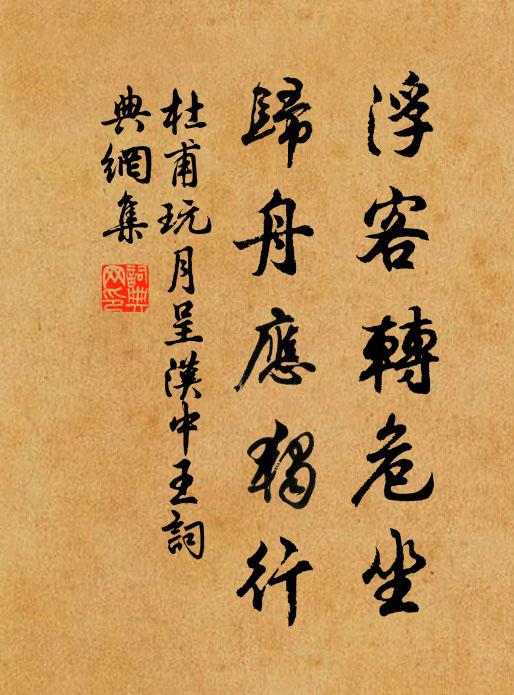 浮客轉危坐
歸舟應獨行
杜甫玩月呈漢中王詞
典網集
詞典
网印